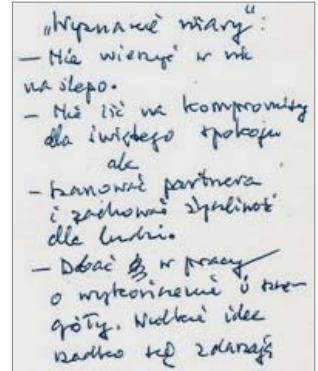 „Wyznanie wiary":
— Nie wierzyć w nic
na ślepo.
— Nie iść na kompromisy
dla świętego spokoju
ale
— szanować partnera
i zachować życzliwość
dla ludzi.
— Dbać w pracy
o wykończenie i szcze-
góły. Wielkie idee
rzadko się zdarzają